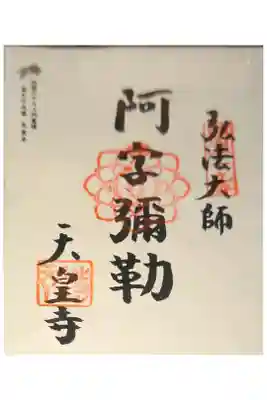 弘法大師
阿字彌勒
天皇寺